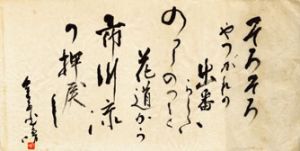 そろそろ
やつがれの
出番
らしい
のっしのっしと
花道から
市川流
の押戻し